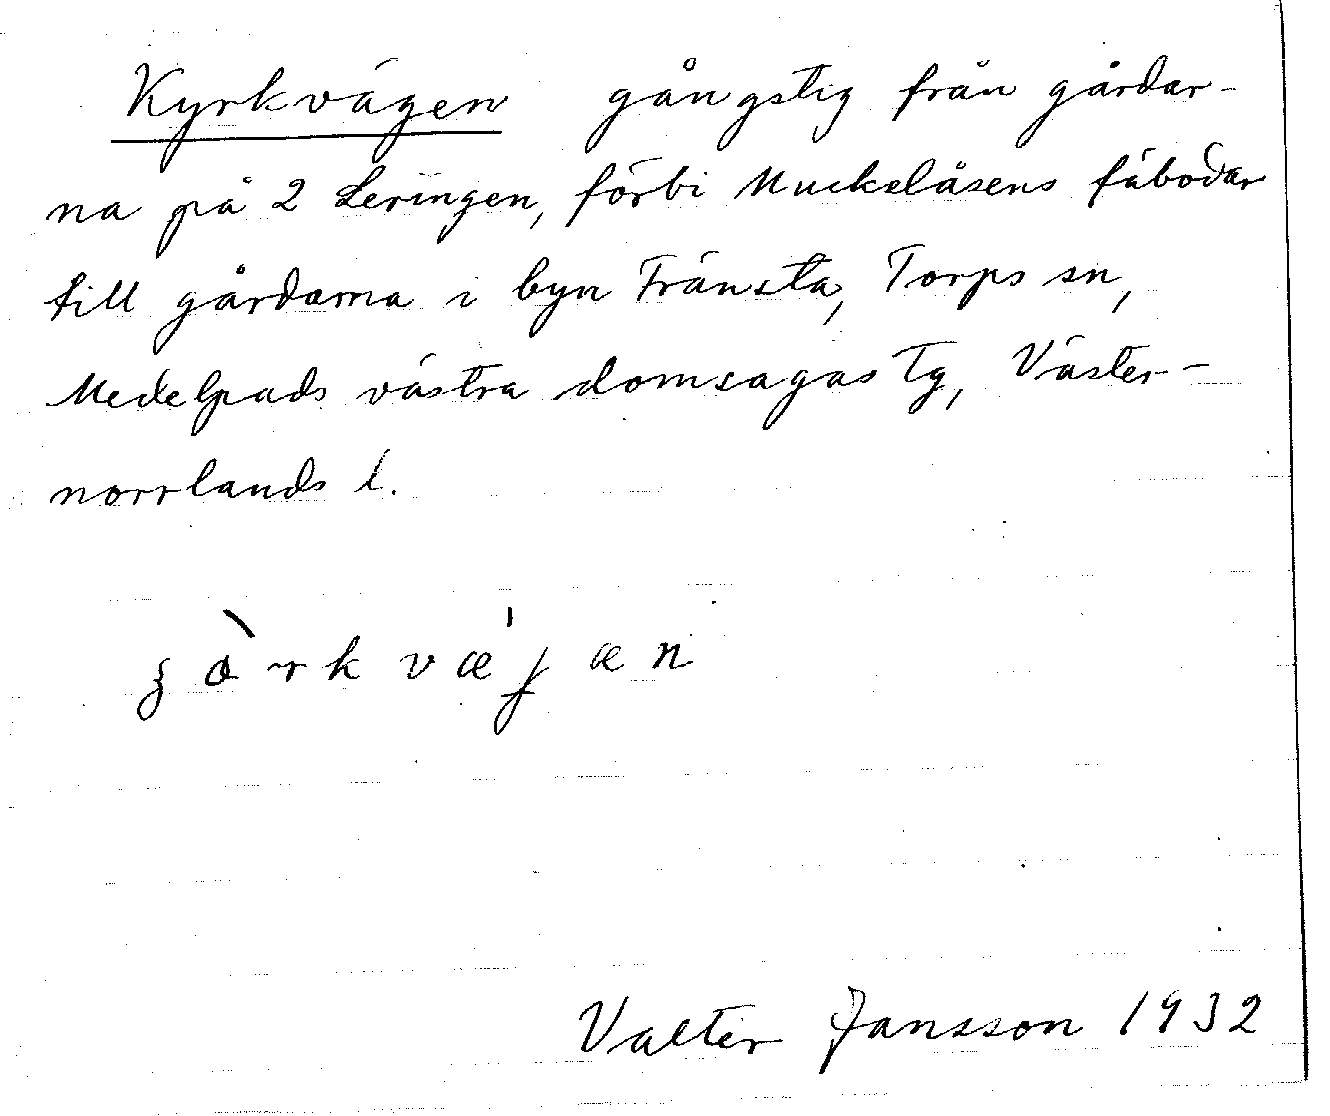 Kyrkvägen gångstig från gårdar-
na på 2 Leringen, förbi Muckelåsens fäbodar
till gårdarna i byn Fränsta, Torps sn,
Medelpads västra domsagas Tg, Väster-
norrlands l.
Valter Jansson 1932